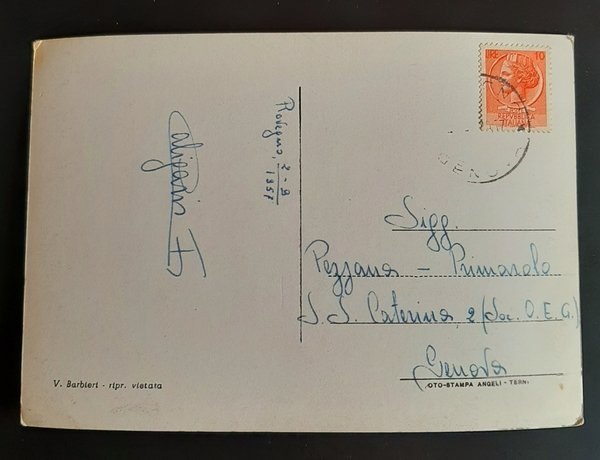 LIRE 10
REPVBBLICA
ITALIANA
GENOVA
Rovegno, 2-9
1957
Sigg.
Pezzana - Primavola
S. S. Caterina, 2 (Soc. O.E.G.)
Genova
V. Barbieri - ripr. vietata
OTO-STAMPA ANGELI - TERNI